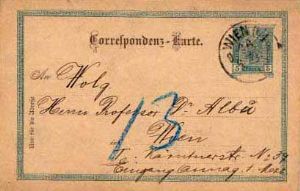 Correspondenz-Karte.
WIEN
5 5
An Wolg
Herrn Professor Dr Albu
13
Wien
I. Kärntnerstr. No 39
Eingang
Nur für die Adresse